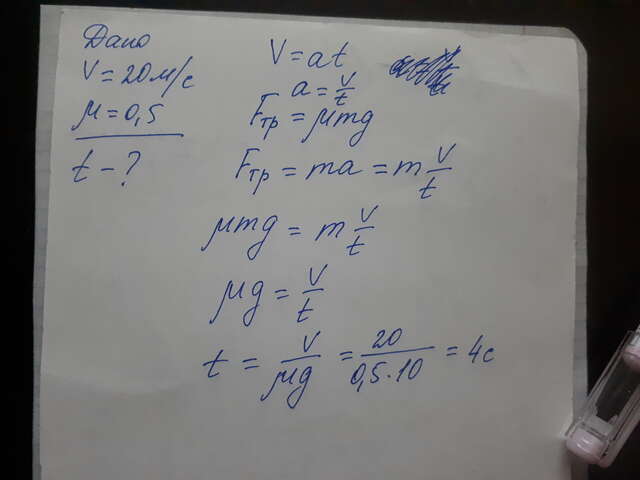 Дано
V = 20 м/с
μ = 0,5
t - ?
V = at
a = V/t
Fтр = μmg
Fтр = ma = m V/t
μmg = m V/t
μg = V/t
t = V/μg = 20/0,5·10 = 4с